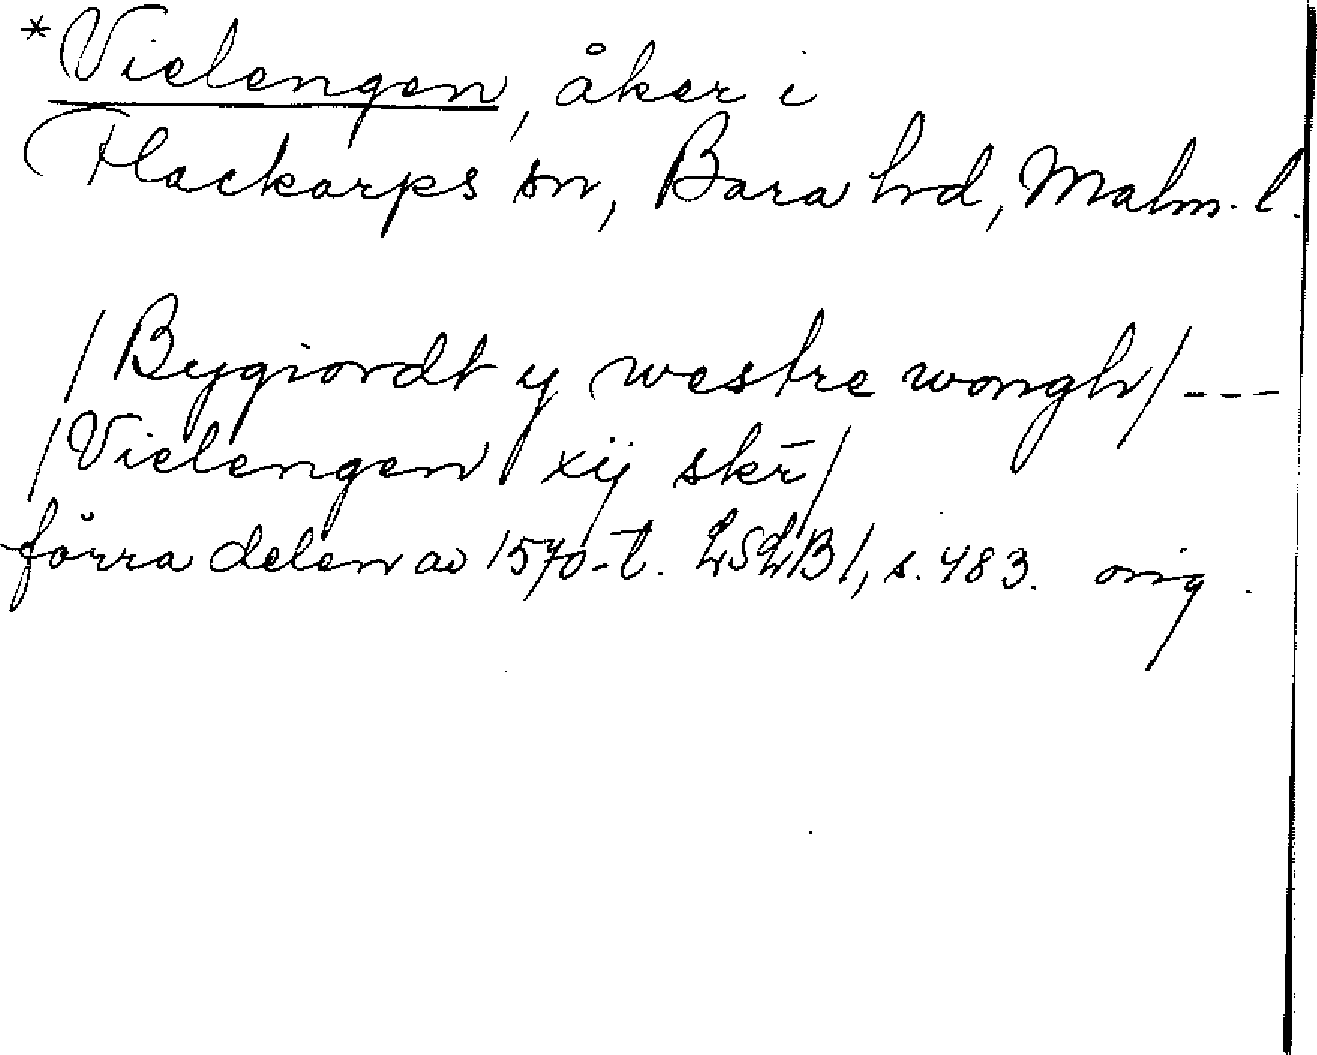 *Vielengen, åker i
Flackarps sn, Bara hd, Malm. l.
/Bygiordt y westre wongh/ ---
/Vielengen xij skr̄/
förra delen av 1570-t. LSLB 1, s. 483. orig.